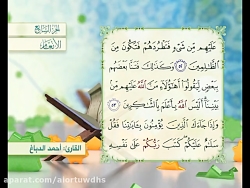 الجزء السابع
الأنعام
عَلَيْهِم مِّن شَىْءٍ فَتَطْرُدَهُمْ فَتَكُونَ مِنَ
ٱلظَّٰلِمِينَ ٥٢ وَكَذَٰلِكَ فَتَنَّا بَعْضَهُم
بِبَعْضٍ لِّيَقُولُوٓا۟ أَهَٰٓؤُلَآءِ مَنَّ ٱللَّهُ عَلَيْهِم مِّنۢ
بَيْنِنَآ أَلَيْسَ ٱللَّهُ بِأَعْلَمَ بِٱلشَّٰكِرِينَ ٥٣
وَإِذَا جَآءَكَ ٱلَّذِينَ يُؤْمِنُونَ بِـَٔايَٰتِنَا فَقُلْ
سَلَٰمٌ عَلَيْكُمْ كَتَبَ رَبُّكُمْ عَلَىٰ نَفْسِهِ
القارئ: أحمد الدباغ